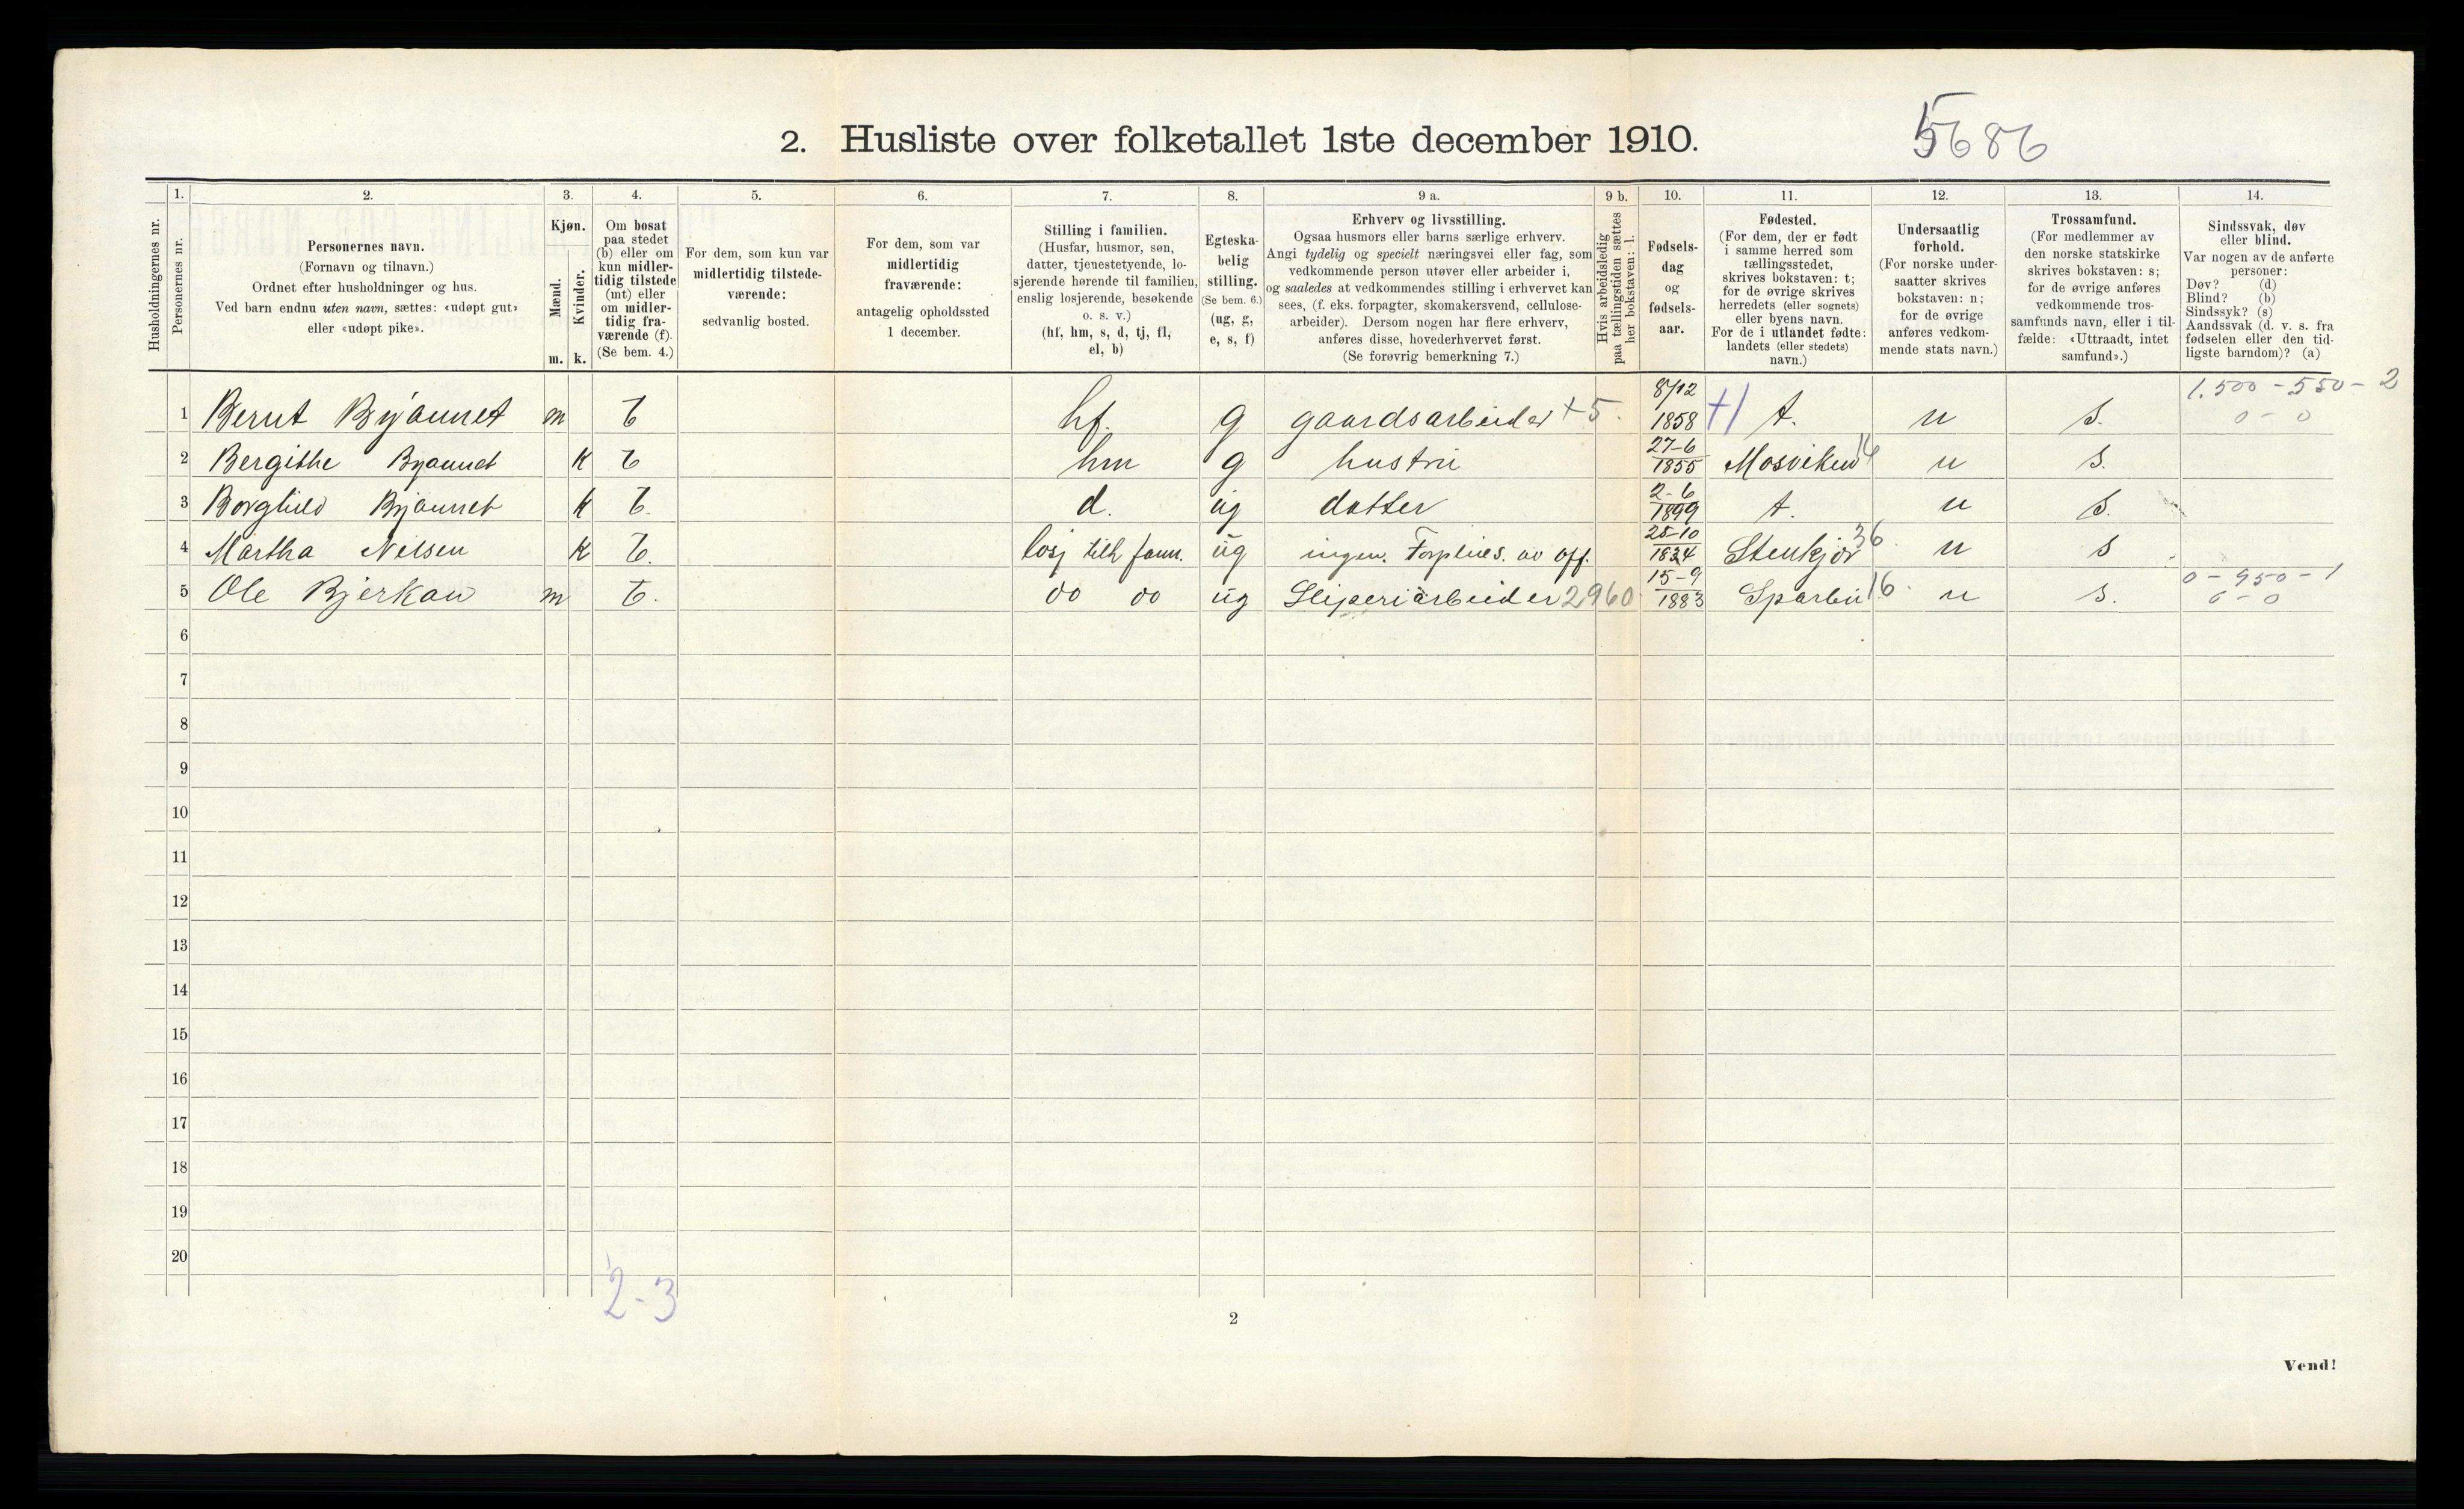 2. Husliste over folketallet 1ste december 1910.
5686
Husholdningernes nr.
1.
Personernes nr.
2.
Personernes navn.
(Fornavn og tilnavn.)
Ordnet efter husholdninger og hus.
Ved barn endnu uten navn, sættes: «udøpt gut»
eller «udøpt pike».
3.
Kjøn.
Mænd.
Kvinder.
m. k.
4.
Om bosat
paa stedet
(b) eller om
kun midler-
tidig tilstede
(mt) eller
om midler-
tidig fra-
værende (f).
(Se bem. 4.)
5.
For dem, som kun var
midlertidig tilstede-
værende:
sedvanlig bosted.
6.
For dem, som var
midlertidig
fraværende:
antagelig opholdssted
1 december.
7.
Stilling i familien.
(Husfar, husmor, søn,
datter, tjenestetyende, lo-
sjerende hørende til familien,
enslig losjerende, besøkende
o. s. v.)
(hf, hm, s, d, tj, fl,
el, b)
8.
Egteska-
belig
stilling.
(Se bem. 6.)
(ug, g,
e, s, f)
9 a.
Erhverv og livsstilling.
Ogsaa husmors eller barns særlige erhverv.
Angi tydelig og specielt næringsvei eller fag, som
vedkommende person utøver eller arbeider i,
og saaledes at vedkommendes stilling i erhvervet kan
sees, (f. eks. forpagter, skomakersvend, cellulose-
arbeider). Dersom nogen har flere erhverv,
anføres disse, hovederhvervet først.
(Se forøvrig bemerkning 7.)
9 b.
Hvis arbeidsledig
paa tællingstiden sættes
her bokstaven: l.
10.
Fødsels-
dag
og
fødsels-
aar.
11.
Fødested.
(For dem, der er født
i samme herred som
tællingsstedet,
skrives bokstaven: t;
for de øvrige skrives
herredets (eller sognets)
eller byens navn.
For de i utlandet fødte:
landets (eller stedets)
navn.)
12.
Undersaatlig
forhold.
(For norske under-
saatter skrives
bokstaven: n;
for de øvrige
anføres vedkom-
mende stats navn.)
13.
Trossamfund.
(For medlemmer av
den norske statskirke
skrives bokstaven: s;
for de øvrige anføres
vedkommende tros-
samfunds navn, eller i til-
fælde: «Uttraadt, intet
samfund».)
14.
Sindssvak, døv
eller blind.
Var nogen av de anførte
personer:
Døv? (d)
Blind? (b)
Sindssyk? (s)
Aandssvak (d. v. s. fra
fødselen eller den tid-
ligste barndom)? (a)
1 Bernt Bjaunet m b hf. g gaardsarbeider +5. 8/12 1858 t. n s. 1.500 - 550 - 2 0 - 0
2 Bergithe Bjaunet k b hm g hustru 27-6 1855 Mosviken 14 n s.
3 Borghild Bjaunet k b. d. ug datter 2-6 1899 t. n s.
4 Martha Nilsen k b. losj tilh fam. ug ingen. Forpleies. av off. 25-10 1834 Stenkjør 36 n s
5 Ole Bjerkan m b. do do ug Sliperiarbeider 2960 15-9 1883 Sparbu 16. n s. 0 - 950 - 1 0 - 0
6
7
8
9
10
11
12
13
14
15
16
17
18
19
20
2-3
2
Vend!